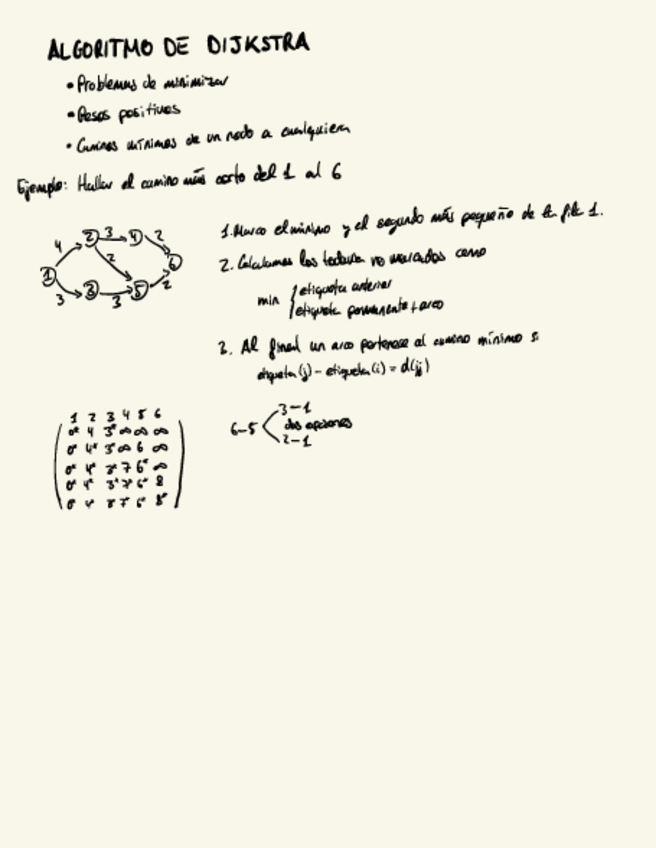 ALGORITMO DE DIJKSTRA
• Problemas de minimizar
• Pesos positivos
• Caminos mínimos de un nodo a cualquiera
Ejemplo: Hallar el camino más corto del 1 al 6
1. Marco el mínimo y el segundo más pequeño de la fila 1.
2. Calculamos los todavía no marcados como
min { etiqueta anterior
etiqueta permanente + arco
3. Al final un arco pertenece al camino mínimo si
etiqueta(j) - etiqueta(i) = d(ij)
4 2 3 4 2
1 2 6
3 3 3 5 2
1 2 3 4 5 6
0* 4 3* ∞ ∞ ∞
0* 4* 3* ∞ 6 ∞
0* 4* 3* 7 6* ∞
0* 4* 3* 7* 6* 8
0* 4* 3* 7* 6* 8*
3-1
6-5 < dos opciones
2-1